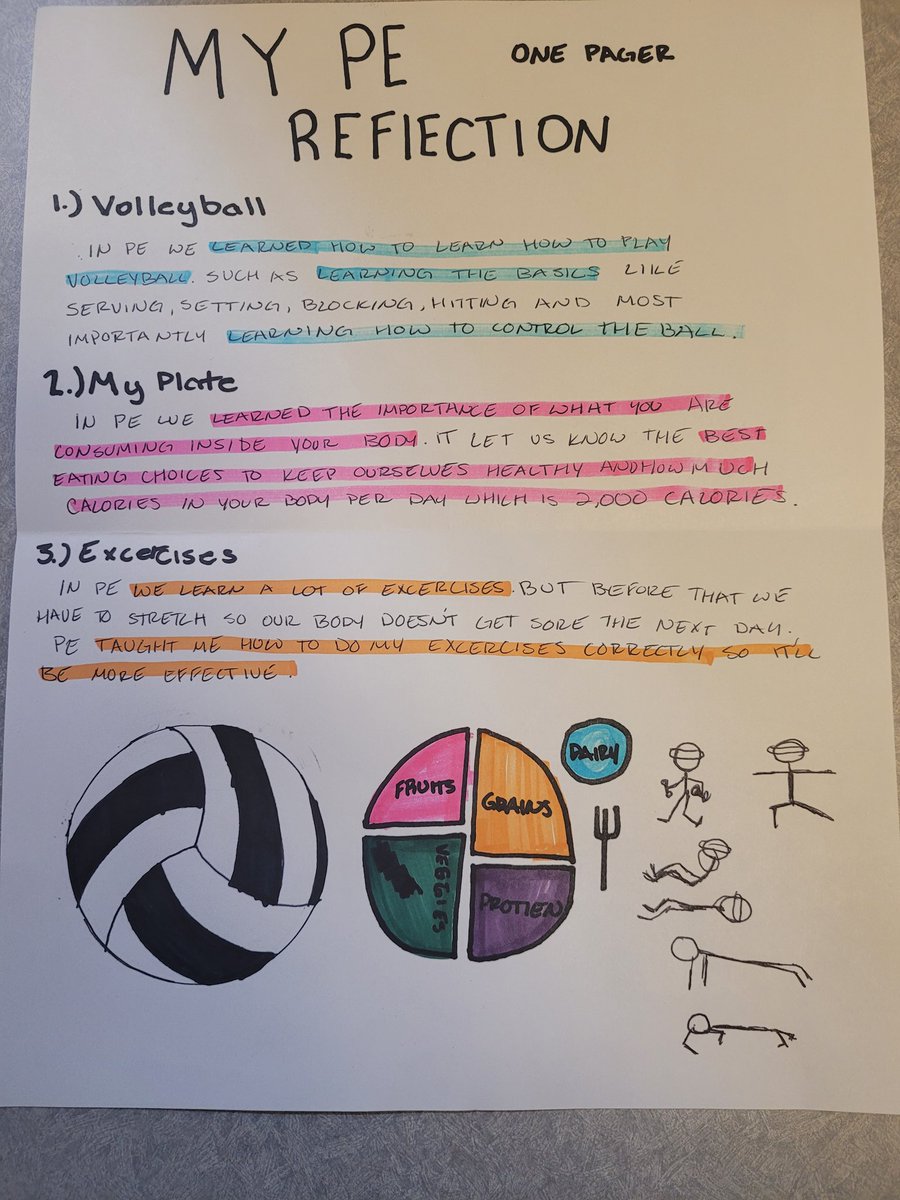 MY PE ONE PAGER
REFlECTION
1.) Volleyball
IN PE WE LEARNED HOW TO LEARN HOW TO PLAY
VOLLEYBALL. SUCH AS LEARNING THE BASICS LIKE
SERVING, SETTING, BLOCKING, HITTING AND MOST
IMPORTANTLY LEARNING HOW TO CONTROL THE BALL.
2.) My Plate
IN PE WE LEARNED THE IMPORTANCE OF WHAT YOU ARE
CONSUMING INSIDE YOUR BODY. IT LET US KNOW THE BEST
EATING CHOICES TO KEEP OURSELVES HEALTHY AND HOW MUCH
CALORIES IN YOUR BODY PER DAY WHICH IS 2,000 CALORIES.
3.) Excercises
IN PE WE LEARN A LOT OF EXCERCISES. BUT BEFORE THAT WE
HAVE TO STRETCH SO OUR BODY DOESN'T GET SORE THE NEXT DAY.
PE TAUGHT ME HOW TO DO MY EXCERCISES CORRECTLY, SO IT'LL
BE MORE EFFECTIVE.
DAIRY
FRUITS
GRAINS
VEGGIES
PROTIEN